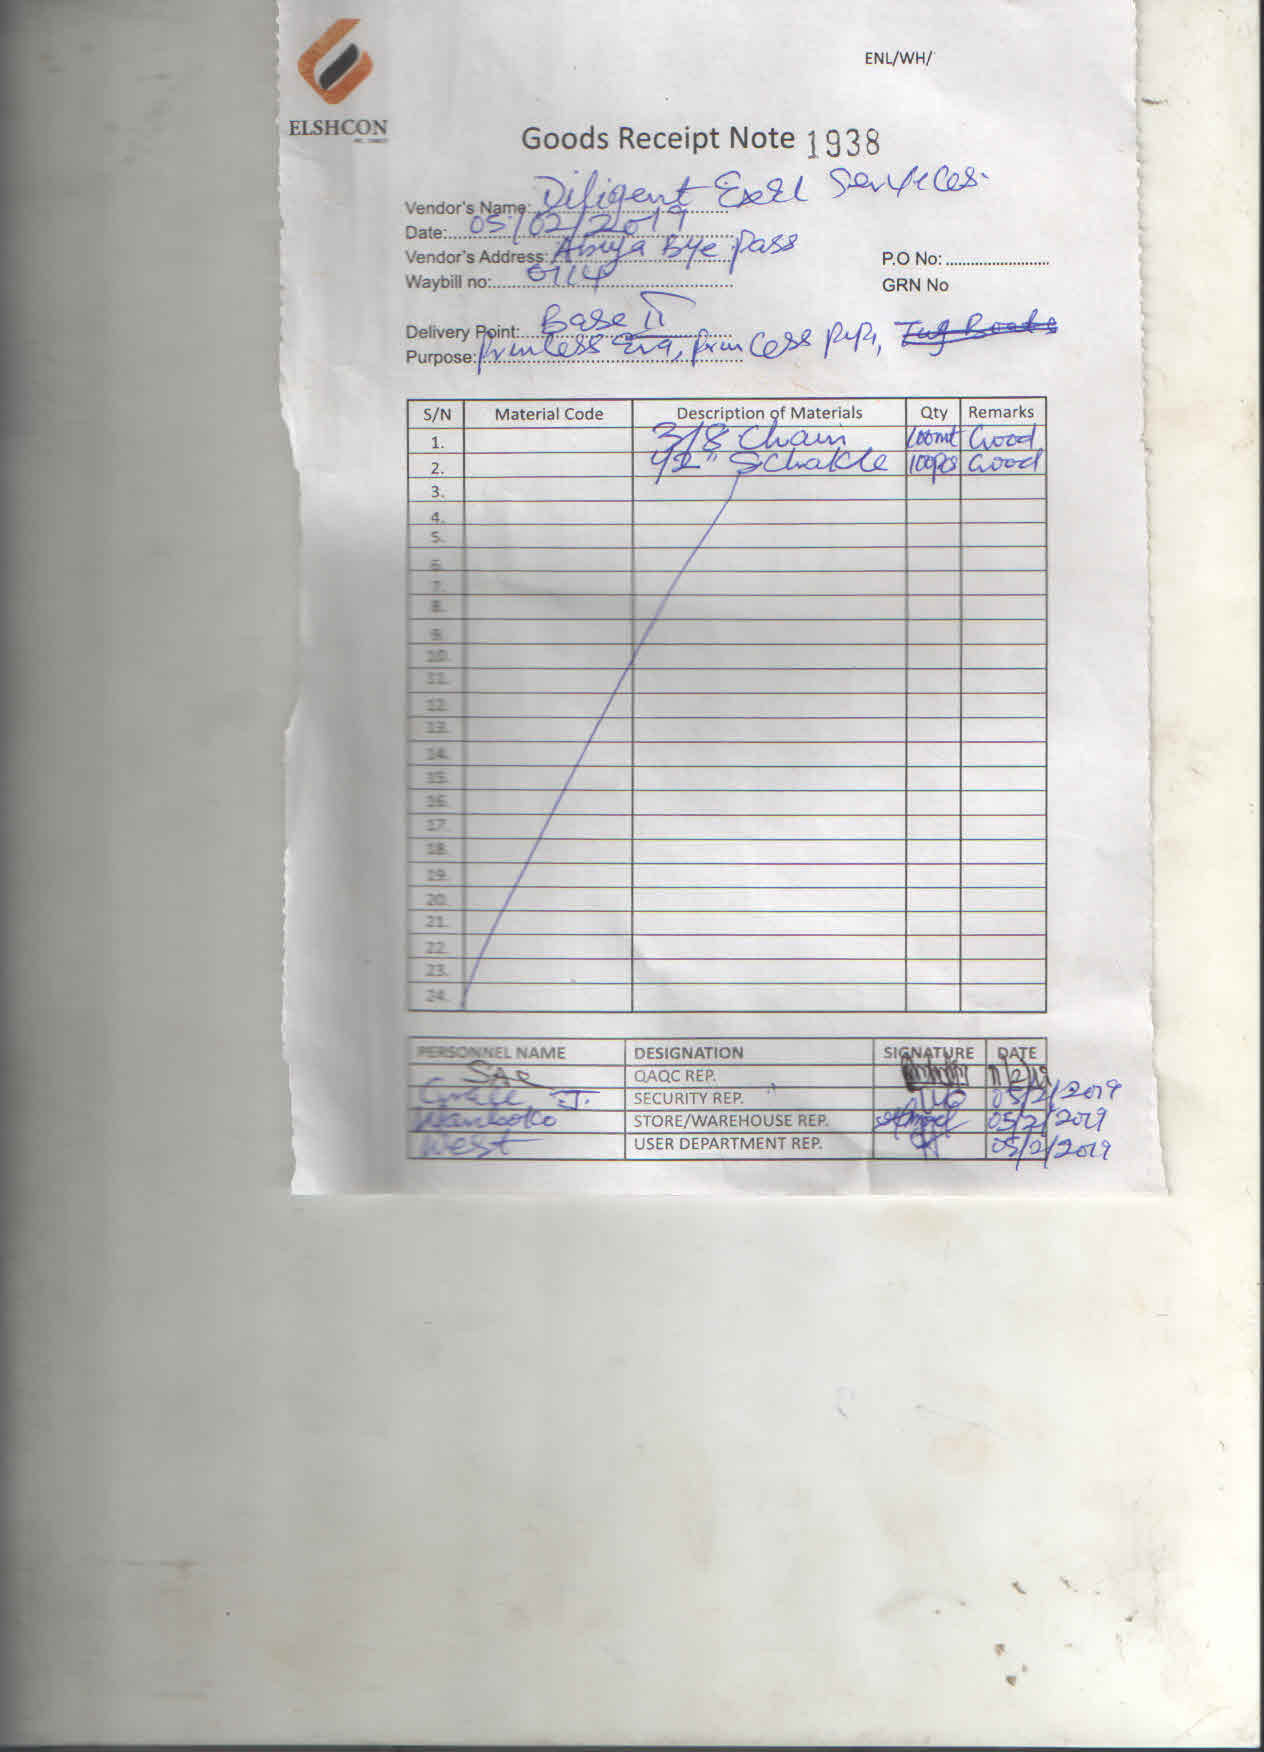 ENL/WH/
ELSHCON
Goods Receipt Note 1938
Vendor's Name: Diligent Exell Services.
Date: 05/02/2019
Vendor's Address: Abuja Bye pass
P.O No:
Waybill no: 0114
GRN No
Delivery Point: Base II
Purpose: Princess Ena, princess pepi, Tug Boats
S/N Material Code Description of Materials Qty Remarks
1. 3/8 Chain 100mt Good
2. 1/2" Schakle 100pcs Good
3.
4.
5.
6.
7.
8.
9.
10.
11.
12.
13.
14.
15.
16.
17.
18.
19.
20.
21.
22.
23.
24.
PERSONNEL NAME DESIGNATION SIGNATURE DATE
QAQC REP. 11/2/19
SECURITY REP. 05/2/2019
STORE/WAREHOUSE REP. 05/2/2019
West USER DEPARTMENT REP. 05/2/2019